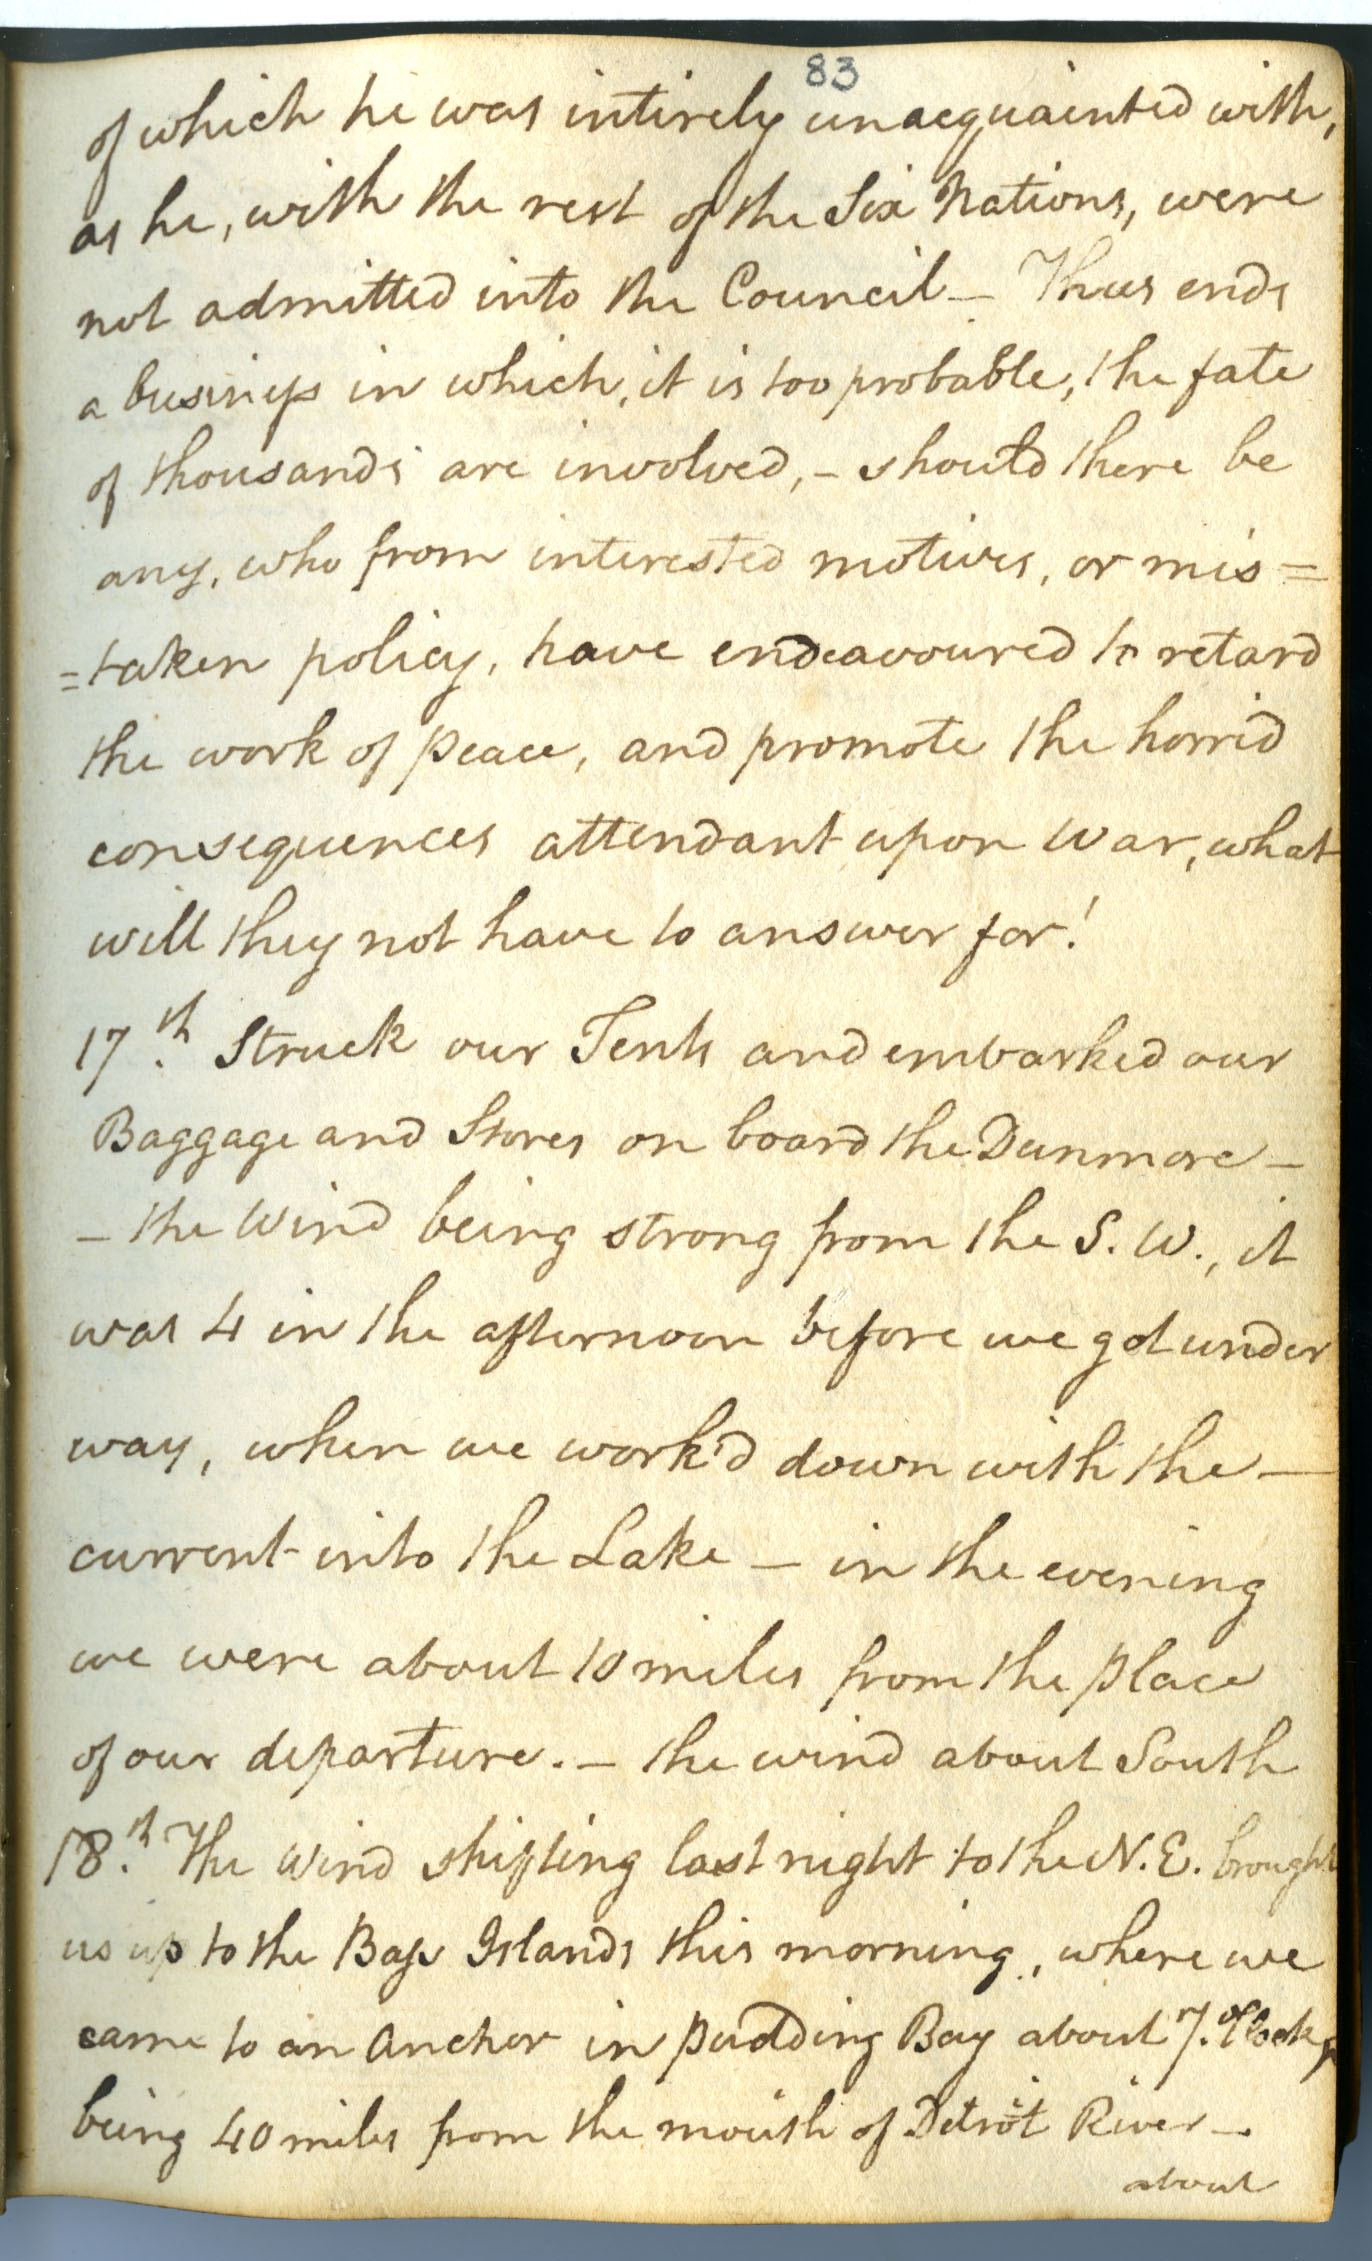 83
of which he was intirely unacquainted with,
as he, with the rest of the Six Nations, were
not admitted into the Council — Thus ends
a business in which, it is too probable, the fate
of thousands are involved, – should there be
any, who from interested motives, or mis=
=taken policy, have endeavoured to retard
the work of peace, and promote the horrid
consequences attendant upon War, what
will they not have to answer for!
17th. Struck our Tents and embarked our
Baggage and Stores on board the Dunmore —
— the Wind being strong from the S. W., it
was 4 in the afternoon before we got under
way, when we work'd down with the —
current into the Lake — in the evening
we were about 10 miles from the place
of our departure. — the wind about South
18th. The Wind shifting last night to the N. E. brought
us up to the Bass Islands this morning, where we
came to an Anchor in pudding Bay about 7. oClock,
being 40 miles from the mouth of Detroit River —.
about